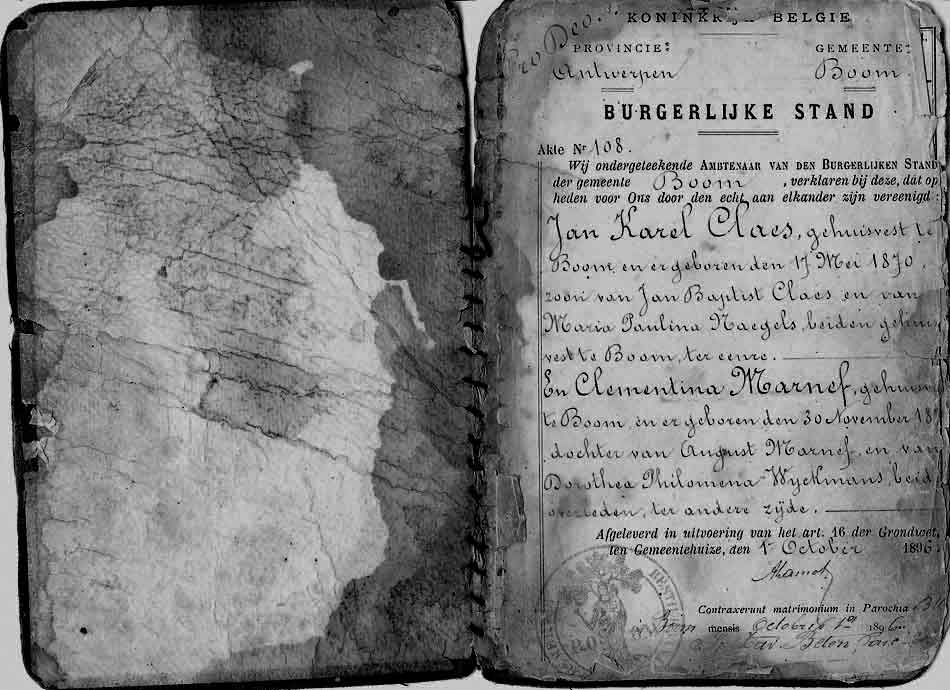 Pro Deo.
KONINKRIJK BELGIE
PROVINCIE: GEMEENTE:
Antwerpen Boom.
BURGERLIJKE STAND
Akte Nr 108.
Wij ondergeteekende AMBTENAAR VAN DEN BURGERLIJKEN STAND
der gemeente Boom, verklaren bij deze, dat op
heden voor Ons door den echt aan elkander zijn vereenigd:
Jan Karel Claes, gehuisvest te
Boom, en er geboren den 17 Mei 1870,
zoon van Jan Baptist Claes en van
Maria Paulina Naegels, beiden gehuis
vest te Boom, ter eenre.
En Clementina Marnef, gehuisv
te Boom, en er geboren den 30 November 187
dochter van August Marnef en van
Dorothea Philomena Wyckmans, beid
overleden, ter andere zijde.
Afgeleverd in uitvoering van het art. 16 der Grondwet,
ten Gemeentehuize, den 1 October 1896.
Contraxerunt matrimonium in Parochia
Boom mensis Octobris 1896